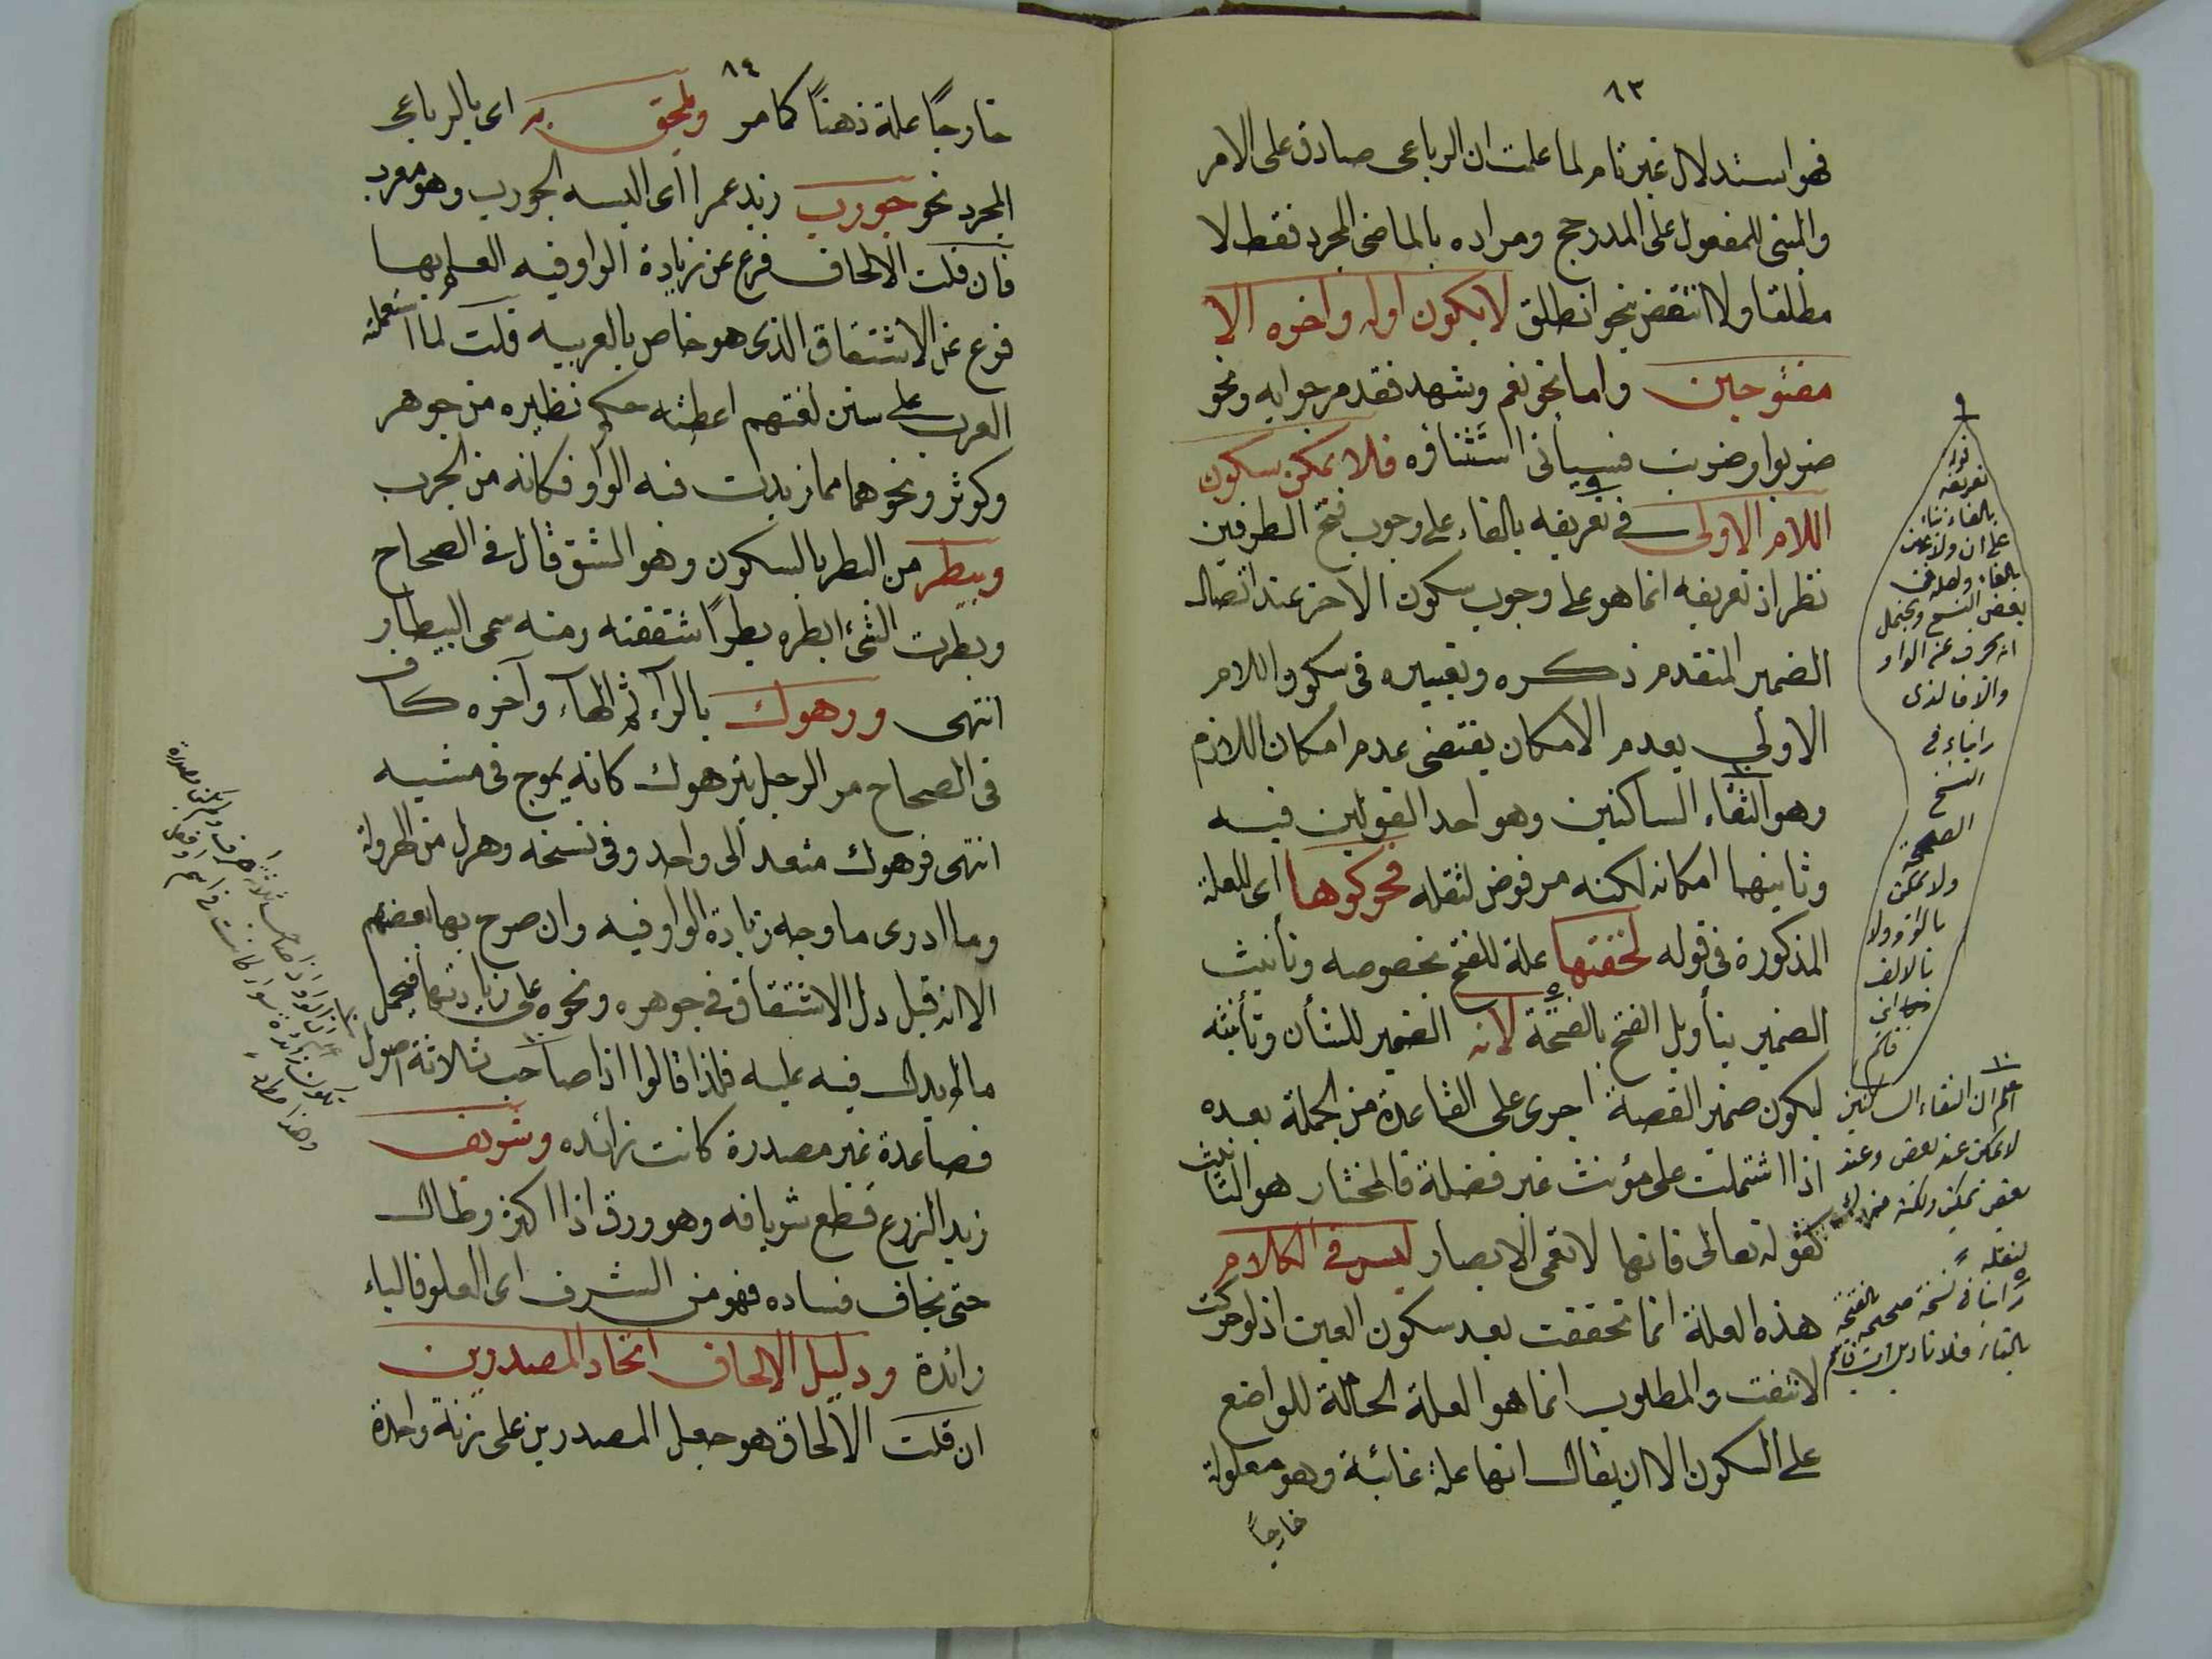 ٨٣
فهو استدلال غير تام لما علمت ان الرباعى صادق على الامر
والمبنى للمفعول على المدرجح ومراده بالماضى المجرد فقط لا
مطلقا ولا انتقض بنحو انطلق لا يكون اوله واخره الا
مفتوحين واما نحو نعم وشهد فقدم جوابه ونحو
ضربوا وضربت فسيأتى استثنافره فلا يمكن سكون
اللام الاولى فى تعريفه بالفاء على وجوب فتح الطرفين
نظر اذ تعريفه انما هو على وجوب سكون الاخر عند اتصال
الضمير المتقدم ذكره وتعبيره فى سكون اللام
الاولى بعدم الامكان يقتضى عدم امكان اللازم
وهو التقاء الساكنين وهو احد القولين فيه
وثانيهما امكانه لكنه مرفوض لثقله فحركوها اى للعلة
المذكورة فى قوله لخفتها علة للفتح بخصوصه وتأنيث
الضمير بتأويل الفتح بالفتحة لانه الضمير للشأن وتأنيثه
ليكون ضمير القصة اجرى على القاعدة من الجملة بعده
اذا اشتملت على مؤنث غير فضلة فالمختار هو التانيث
كقوله تعالى فانها لا تعمى الابصار ليس فى الكلام
هذه العلة انما تحققت بعد سكون العين اذ لو حركت
لانتفت والمطلوب انما هو العلة الحاملة للواضع
على السكون الا ان يقال انها علة غائية وهو معلولة
خارجاً
نوله
تعريفه
بالفاء بناء
على ان ولا يمكن
بالفاء
بعض النسخ ويحتمل
انه تحرف عن الواو
والا فالذى
رايناه فى
النسخ
الصحيحة
ولا يمكن
بالواو ولا
بالالف
فافهم
اعلم ان التقاء الساكنين
لا يمكن عند بعض وعند
بعض يمكن ولكنه متروك
لثقله
رايناه فى نسخة صحيحة بالفتحة
بالتاء فلا تاويل
٨٤
خارجًا علة ذهنًا كما مر ويلحق به اى بالرباعى
المجرد نحو جورب زيد عمرا اى البسه الجورب وهو معرب
فان قلت الالحاق فرع عن زيادة الواو فيه العلم بها
فرع عن الاشتقاق الذى هو خاص بالعربيه قلت لما استعملته
العرب على سنن لغتهم اعطته حكم نظيره من جوهر
وكوثر ونحوهما مما زيدت فيه الواو فكانه من الجرب
وبيطر من البطر بالسكون وهو الشق قال فى الصحاح
وبطرت الشئ ابطره بطرًا شققته ومنه سمى البيطار
انتهى ورهوك بالرآء ثم الهآء وآخره كاف
فى الصحاح مر الرجل يترهوك كانه يموج فى مشيه
انتهى فرهوك متعد الى واحد وفى نسخه وهرول من الهرولة
وما ادرى ما وجه زيادة الواو فيه وان صرح بها بعضهم
الا انه قيل دل الاشتقاق فى جوهره ونحوه على زيادتها فيحمل
ما لم يدل فيه عليه فلذا قالوا اذا صاحب ثلاثة اصول
فصاعدة غير مصدرة كانت زائده وشريف
زيد الزرع قطع شريافه وهو ورق اذا اكثر وطال
حتى يخاف فساده فهو من الشرف اى العلو فالياء
زائدة ودليل الالحاق اتحاد المصدرين
ان قلت الالحاق هو جعل المصدرين على زنة واحدة